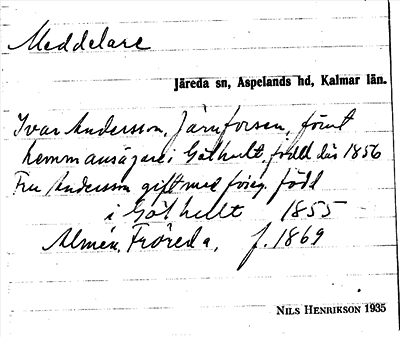 Meddelare
Järeda sn, Aspelands hd, Kalmar län.
Ivar Andersson, Järnforsen, förut
hemmansägare i Göthult, född där 1856
Fru Andersson gift med föreg. född
i Göthult 1855
Almén, Fröreda, f. 1869
NILS HENRIKSON 1935